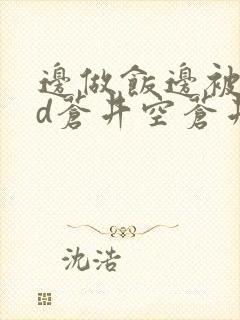 邊做飯邊被
d蒼井空蒼井
沈浩